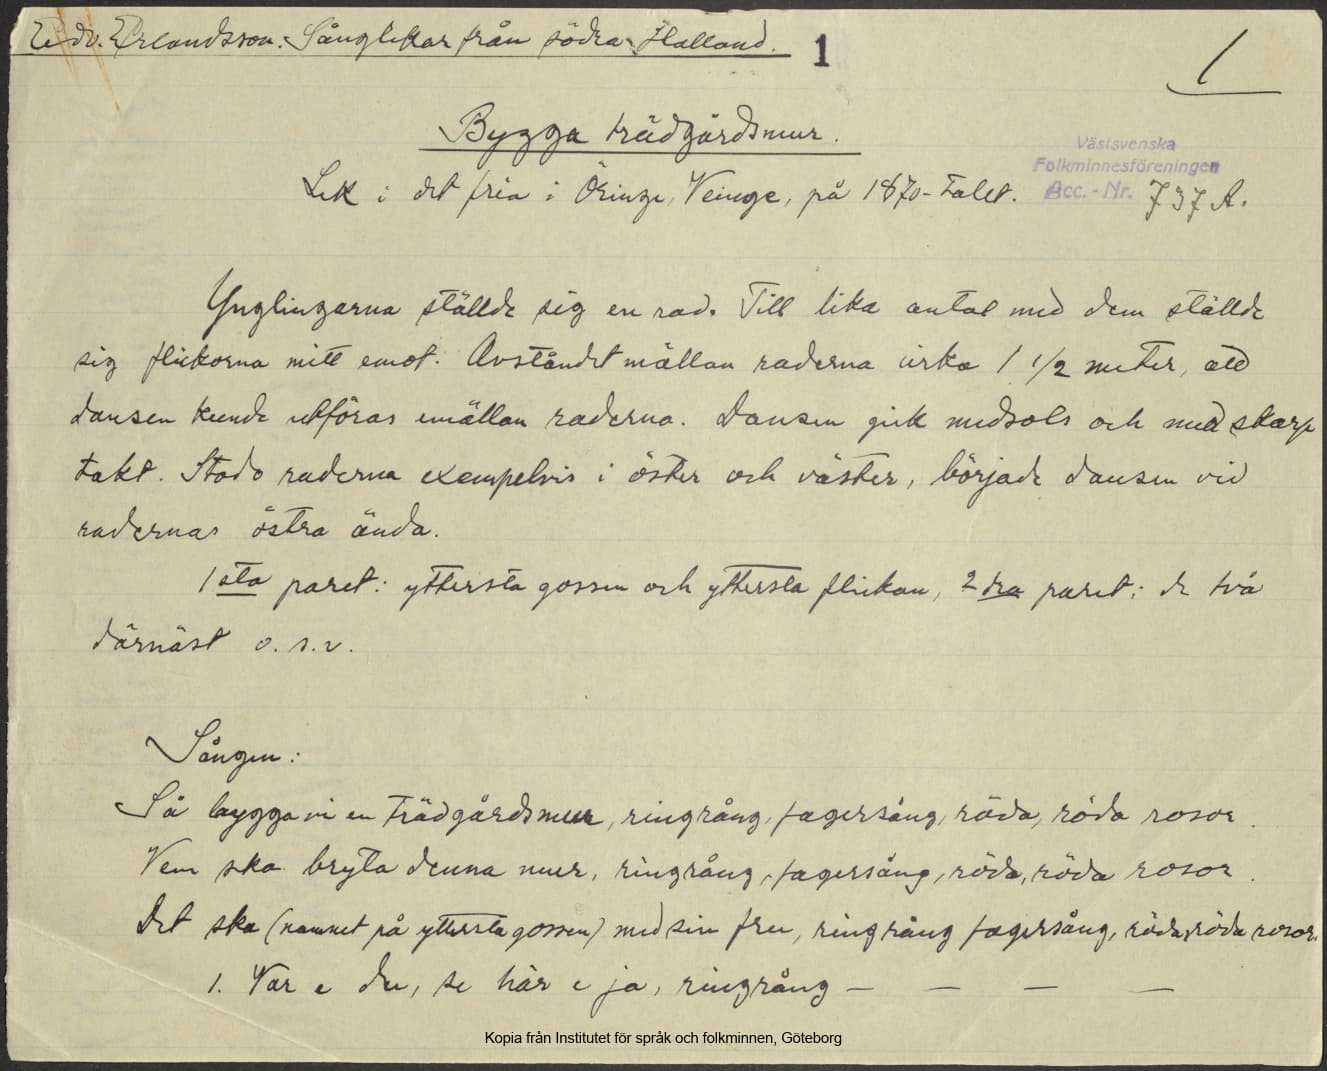 Edv. Erlandsson. Sånglekar från södra Halland. 1
1
Bygga trädgårdsmur.
Västsvenska
Folkminnesföreningen
Acc. - Nr. 737 A.
Lek i det fria i Öringe, Veinge, på 1870-talet.
Ynglingarna ställde sig en rad. Till lika antal med dem ställde
sig flickorna mitt emot. Avståndet mällan raderna cirka 1 1/2 meter, att
dansen kunde utföras emällan raderna. Dansen gick medsols och med skarp
takt. Stodo raderna exempelvis i öster och väster, började dansen vid
radernas östra ända.
1sta paret: yttersta gossen och yttersta flickan, 2dra paret: de två
därnäst o.s.v.
Sången:
Så bygga vi en trädgårdsmur, ringrång, fagersång, röda, röda rosor.
Vem ska bryta denna mur, ringrång, fagersång, röda, röda rosor.
Det ska (namnet på yttersta gossen) med sin fru, ringrång fagersång, röda, röda rosor.
1. Var e du, se här e ja, ringrång — — — —
Kopia från Institutet för språk och folkminnen, Göteborg